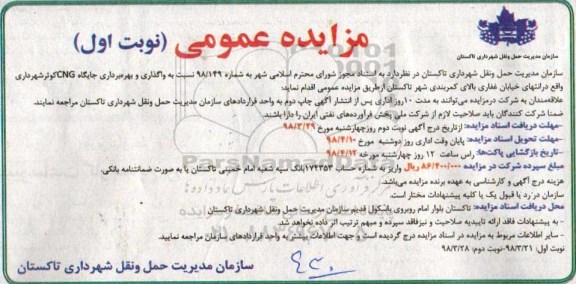 مزایده عمومی (نوبت اول)
سازمان مدیریت حمل ونقل شهرداری تاکستان
سازمان مدیریت حمل ونقل شهرداری تاکستان در نظردارد به استناد مجوز شورای محترم اسلامی شهر به شماره ۹۸/۱۴۹ نسبت به واگذاری و بهره‌برداری جایگاه CNGکوثرشهرداری
واقع درانتهای خیابان غفاری بالای کمربندی شهر تاکستان ازطریق مزایده عمومی اقدام نماید؛
علاقه‌مندان به شرکت درمزایده می‌توانند به مدت ۱۰روز اداری پس از انتشار آگهی چاپ دوم به واحد قراردادهای سازمان مدیریت حمل ونقل شهرداری تاکستان مراجعه نمایند.
ضمنا شرکت کنندگان باید صلاحیت لازم از شرکت ملی پخش فرآورده‌های نفتی ایران را دارا باشند.
-مهلت دریافت اسناد مزایده: ازتاریخ درج آگهی نوبت دوم روزچهارشنبه مورخ ۹۸/۳/۲۹
-مهلت تحویل اسناد مزایده: پایان وقت اداری روز دوشنبه مورخ ۹۸/۴/۱۰
-تاریخ بازگشایی پاکت‌ها: راس ساعت ۱۲ روز چهارشنبه مورخ ۹۸/۴/۱۲
مبلغ سپرده شرکت در مزایده ۸۶/۴۰۰/۰۰۰ ریال واریز به شماره حساب ۱۷۲۳۵۳ بانک سپه شعبه امام خمینی تاکستان یا به صورت ضمانتنامه بانکی.
هزینه درج آگهی و کارشناسی به عهده برنده مزایده می‌باشد.
سازمان در رد یا قبول یک یا کلیه پیشنهادات مختار است.
محل دریافت اسناد مزایده: تاکستان بلوار امام روبروی باسکول قدیم سازمان مدیریت حمل ونقل شهرداری تاکستان
- به پیشنهادات فاقد ارائه تاییدیه صلاحیت و نیزفاقد سپرده و مبهم ترتیب اثر داده نخواهد شد.
- سایر اطلاعات مربوط به مزایده در اسناد مزایده درج گردیده است وجهت اطلاعات بیشتر به واحد قراردادهای سازمان مراجعه نمایید.
نوبت اول: ۹۸/۳/۲۱-نوبت دوم: ۹۸/۳/۲۸
سازمان مدیریت حمل ونقل شهرداری تاکستان